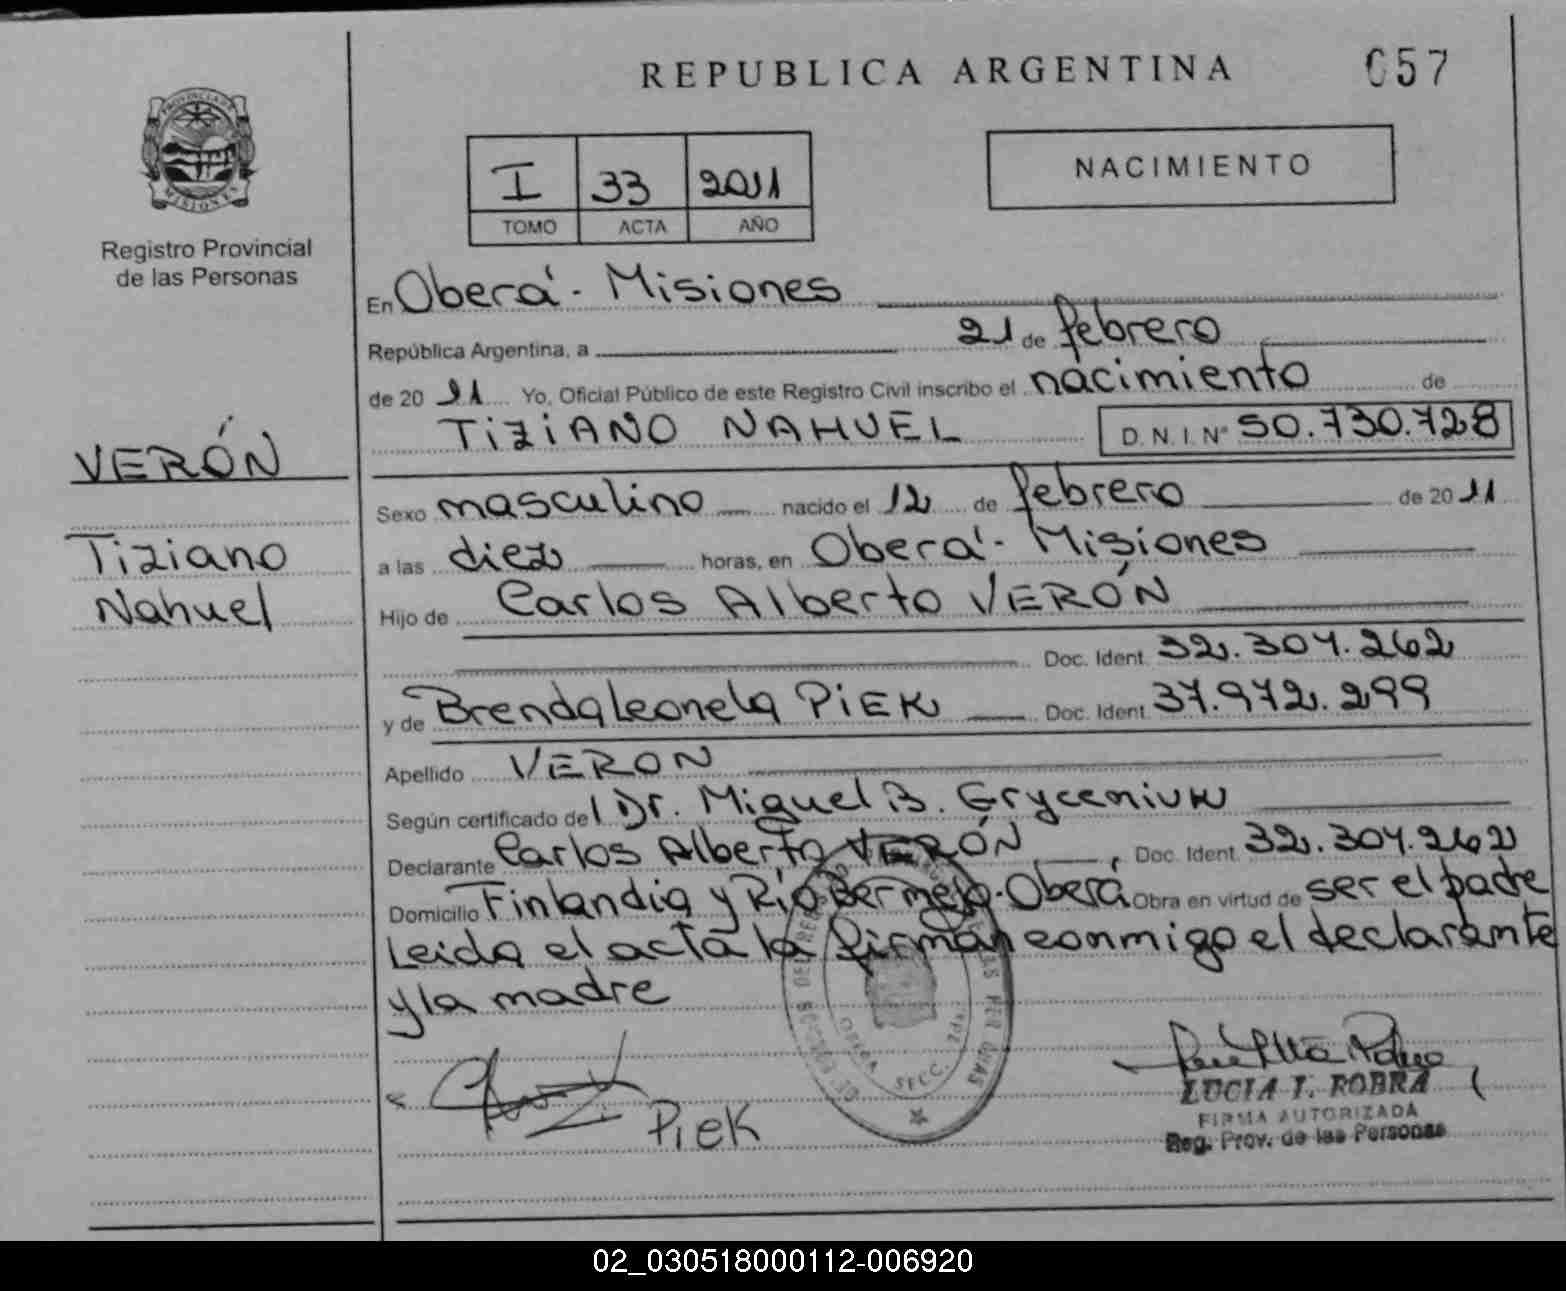 REPUBLICA ARGENTINA
057
PROVINCIA DE MISIONES
Registro Provincial
de las Personas
I 33 2011
TOMO ACTA AÑO
NACIMIENTO
En Oberá - Misiones
República Argentina, a 21 de febrero
de 20 11 Yo, Oficial Público de este Registro Civil inscribo el nacimiento de
TiziANO NAHUEL D.N.I. Nº 50.730.728
VERÓN
Tiziano
Nahuel
Sexo masculino nacido el 12 de febrero de 20 11
a las diez horas, en Oberá - Misiones
Hijo de Carlos Alberto VERÓN
Doc. Ident. 32.304.262
y de Brenda Leonela PiEK Doc. Ident. 37.972.299
Apellido VERON
Según certificado del Dr. Miguel B. Gryceniuk
Declarante Carlos Alberto VERÓN, Doc. Ident. 32.304.262
Domicilio Finlandia y Río Bermejo - Oberá Obra en virtud de ser el padre
Leida el acta la firman conmigo el declarante
y la madre
OBERA SECC. 2da.
Piek
LUCIA I. ROBRA
FIRMA AUTORIZADA
Reg. Prov. de las Personas
02_030518000112-006920